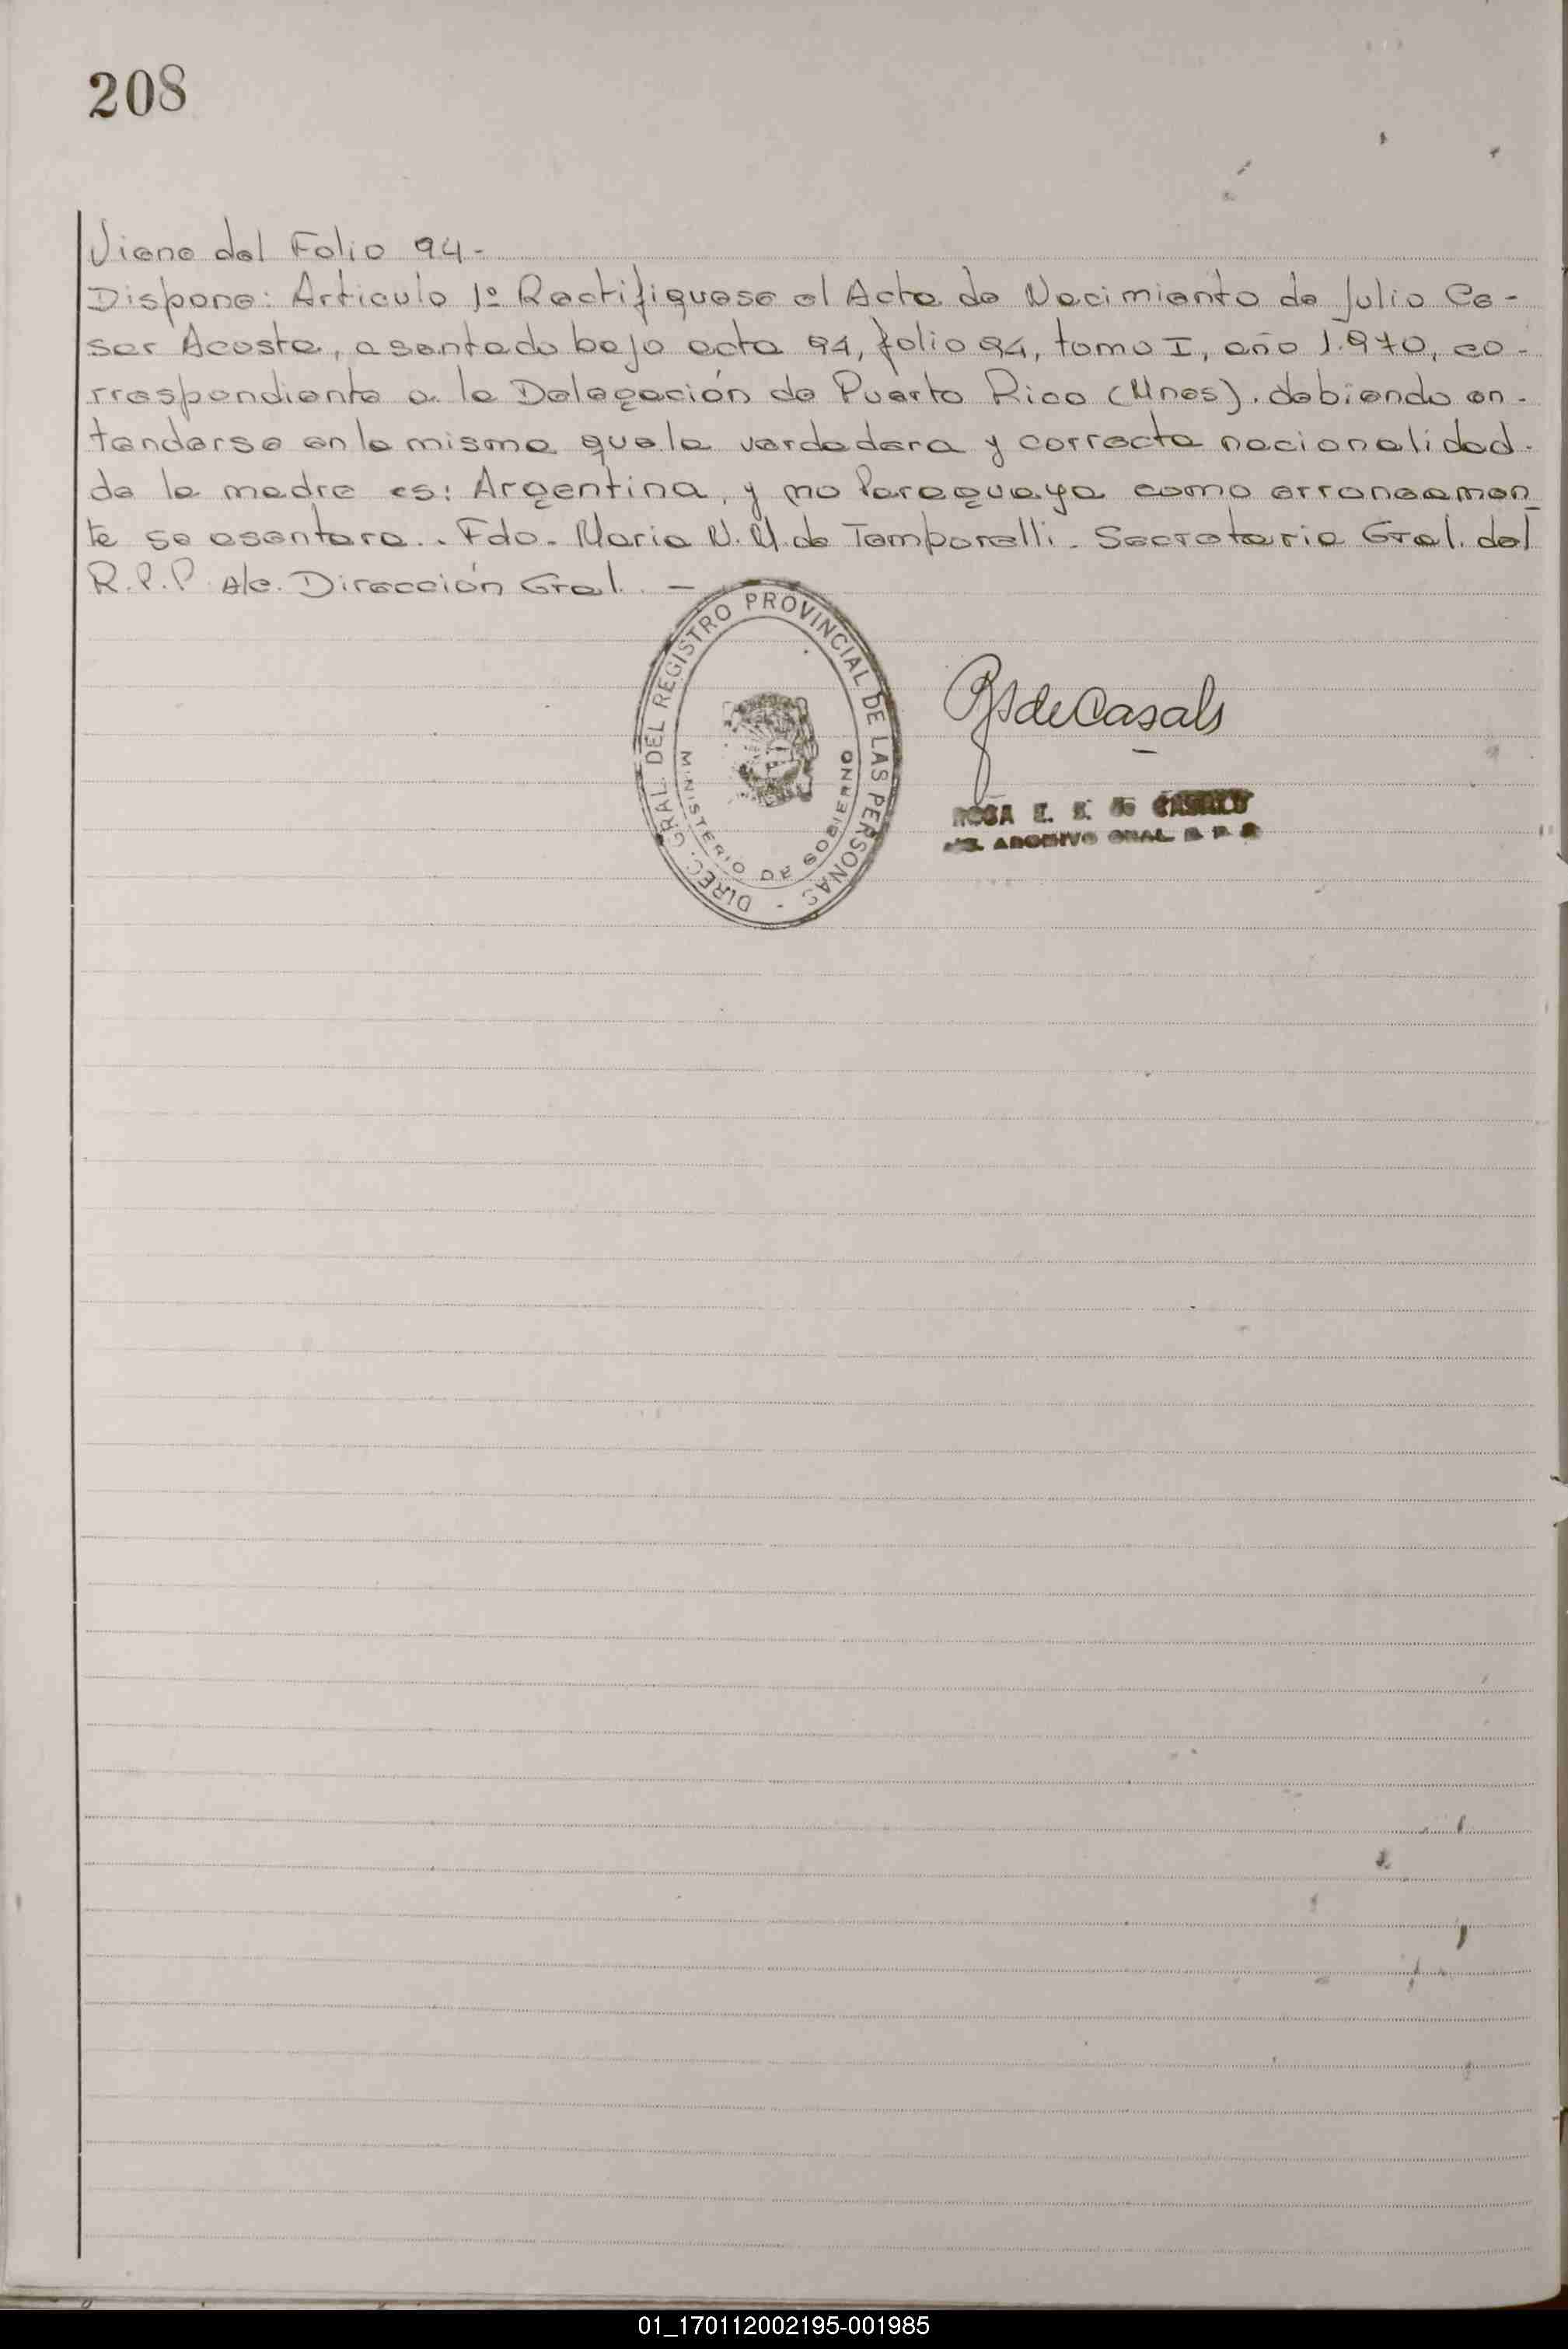 208
Viene del Folio 94-
Dispone: Articulo 1º Rectifiquese el Acta de Nacimiento de Julio Ce-
sar Acosta, asentado bajo acta 94, folio 94, tomo I, año 1.970, co-
rrespondiente a la Delegación de Puerto Rico (Mnes). debiendo en-
tenderse en la misma que la verdadera y correcta nacionalidad-
de la madre es: Argentina, y no Paraguaya como erroneamen_
te se asentara.. Fdo. Maria N. M. de Temporelli. Secretaria Gral. del
R.P.P. A/c. Dirección Gral. —
DIREC. GRAL. DEL REGISTRO PROVINCIAL DE LAS PERSONAS -
MINISTERIO DE GOBIERNO
de Casals
ROSA E. S. de CASALS
ARCHIVO GRAL. R. P. P.
01_170112002195-001985